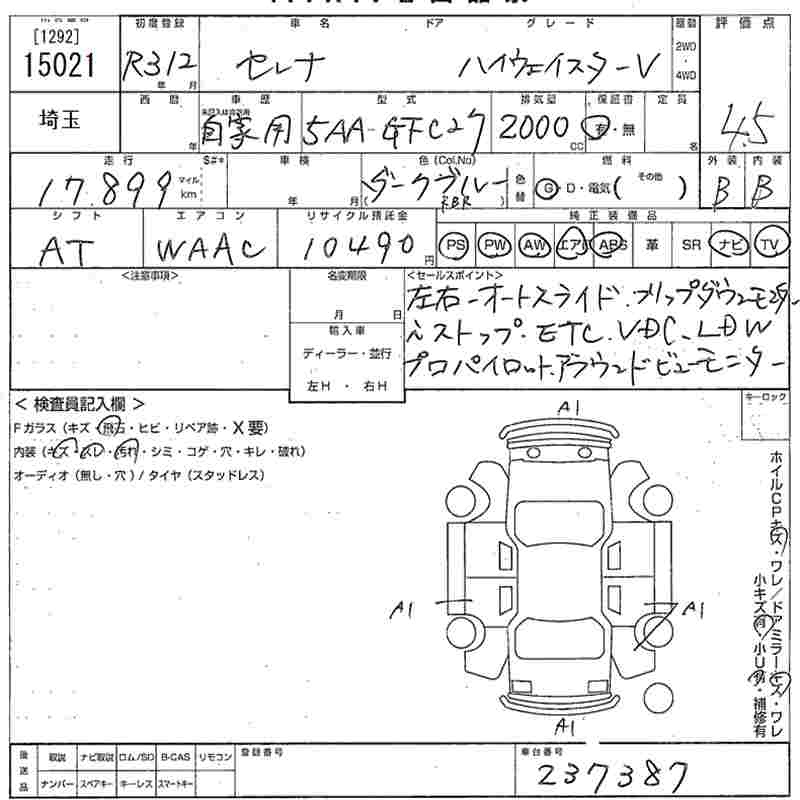 [1292]
15021
初度登録 車名 ドア グレード 駆動 評価点
R3 12 年 月 セレナ ハイウェイスターV 2WD・4WD
埼玉 西暦 年 車歴 型式 排気量 保証書 定員 4.5
自家用 5AA-GFC27 2000 CC 有・無 名
走行 S#* 車検 色(Col,No) 燃料 外装 内装
17.899 マイル km 年 月 ダークブルー (RBR) 色替 G・D・電気( その他 ) B B
シフト エアコン リサイクル預託金 純正装備品
AT WAAC 10490 円 PS PW AW エアB ABS 革 SR ナビ TV
<注意事項> 名変期限 <セールスポイント>
月 日
左右-オートスライド.フリップダウンモニター
輸入車
ストップ.ETC.VDC.LDW
ディーラー・並行
プロパイロット.アラウンドビューモニター
左H ・ 右H
< 検査員記入欄 > キーロック
Fガラス (キズ・飛石・ヒビ・リペア跡・X要)
内装 (キズ・スレ・汚れ・シミ・コゲ・穴・キレ・破れ)
オーディオ (無し・穴) / タイヤ (スタッドレス)
A1
ホイルCPキズ・ワレ/ドアミラーキズ・ワレ
小キズ有・小U有・補修有
A1 A1
A1
後送品 取説 ナビ取説 ロム/SD B-CAS リモコン 登録番号 車台番号
ナンバー スペアキー キーレス スマートキー 237387